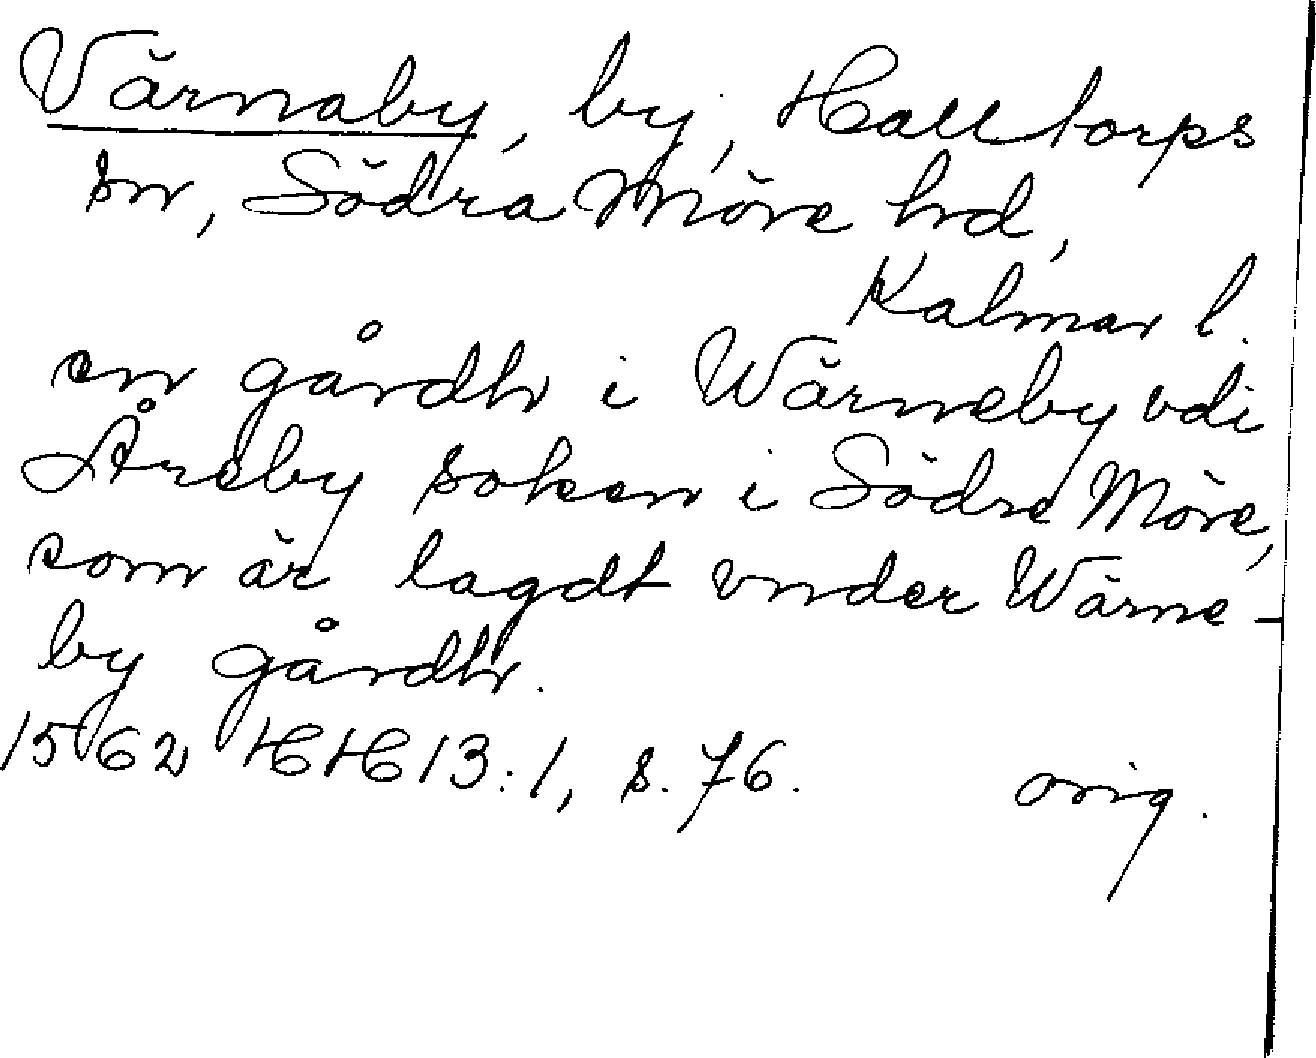 Värnaby, by, Halltorps
sn, Södra Möre hd,
Kalmar l.
en gårdh i Wärneby vdi
Åreby soken i Södre Möre,
som är lagdt vnder Wärne-
by gårdh.
1562 HH 13:1, s. 76. orig.